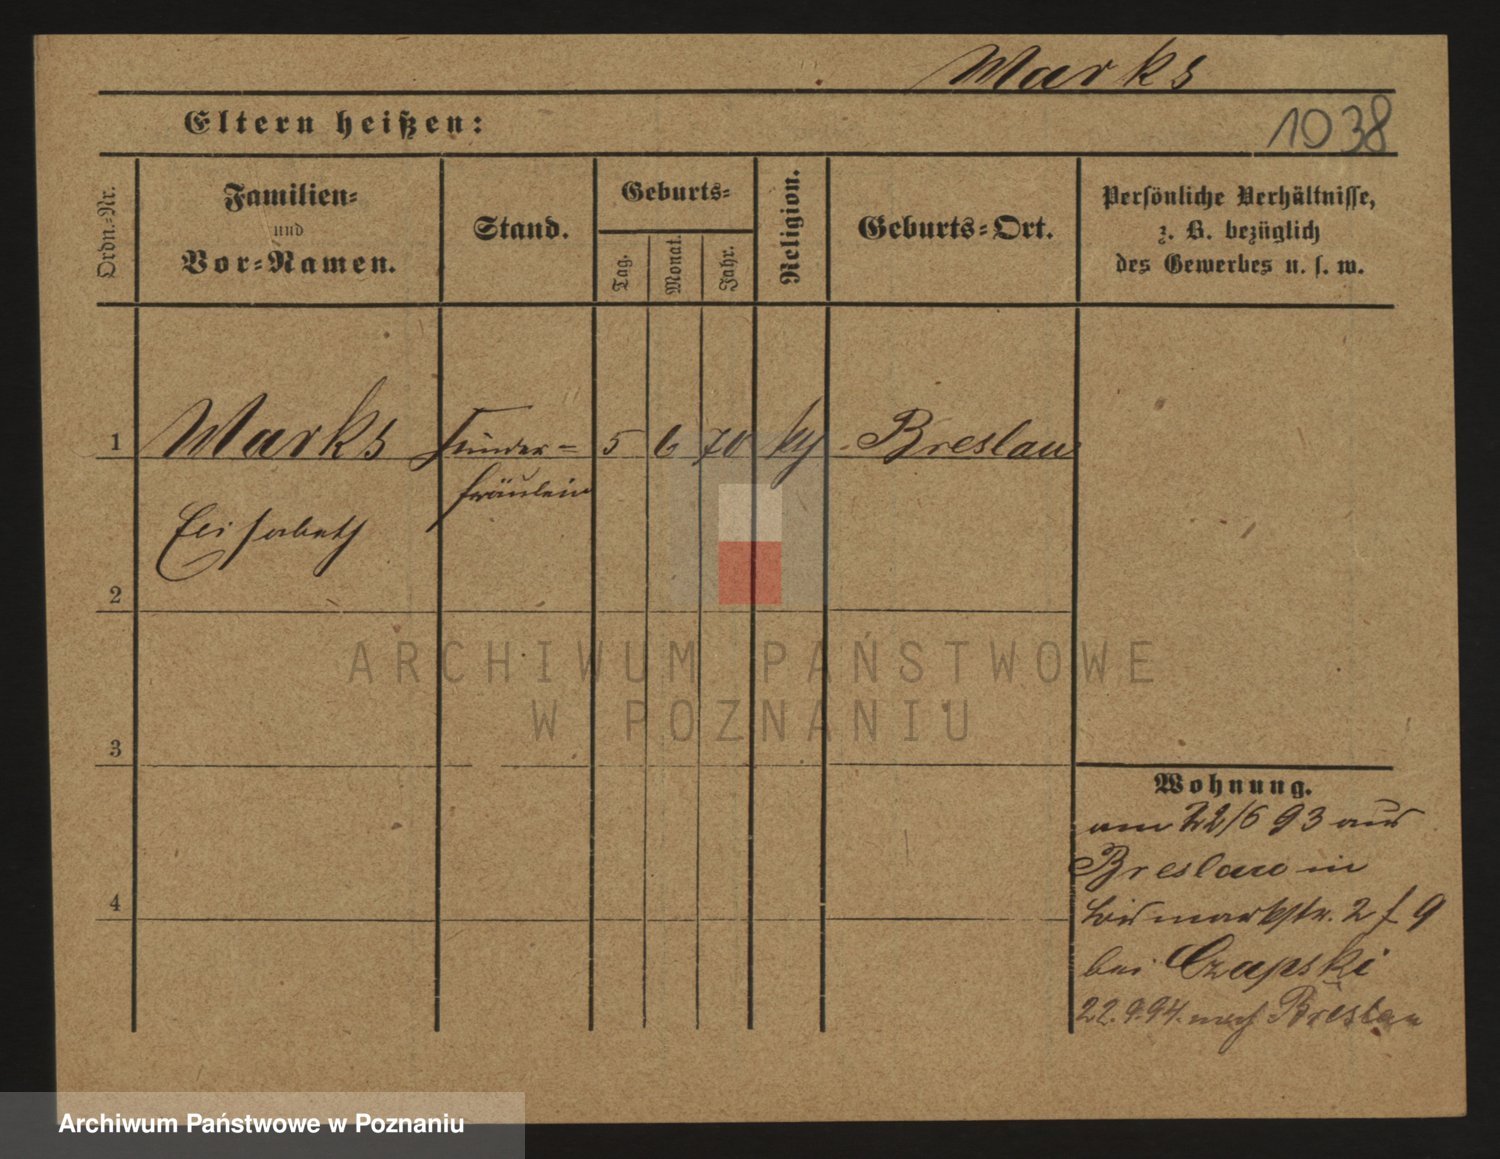 Marks
Eltern heißen:
1038
Ordn.=Nr.
Familien=
und
Vor=Namen.
Stand.
Geburts=
Tag.
Monat.
Jahr.
Religion.
Geburts=Ort.
Persönliche Verhältnisse,
z. B. bezüglich
des Gewerbes u. s. w.
1
Marks
Kinder=
5
6
70
Breslau
fräulein
Elisabeth
2
ARCHIWUM PAŃSTWOWE
W POZNANIU
3
Wohnung.
am 22/6 93 aus
Breslau in
Bismarkstr. 2 f 9
4
bei Czapski
22.9.94. nach Breslau
Archiwum Państwowe w Poznaniu